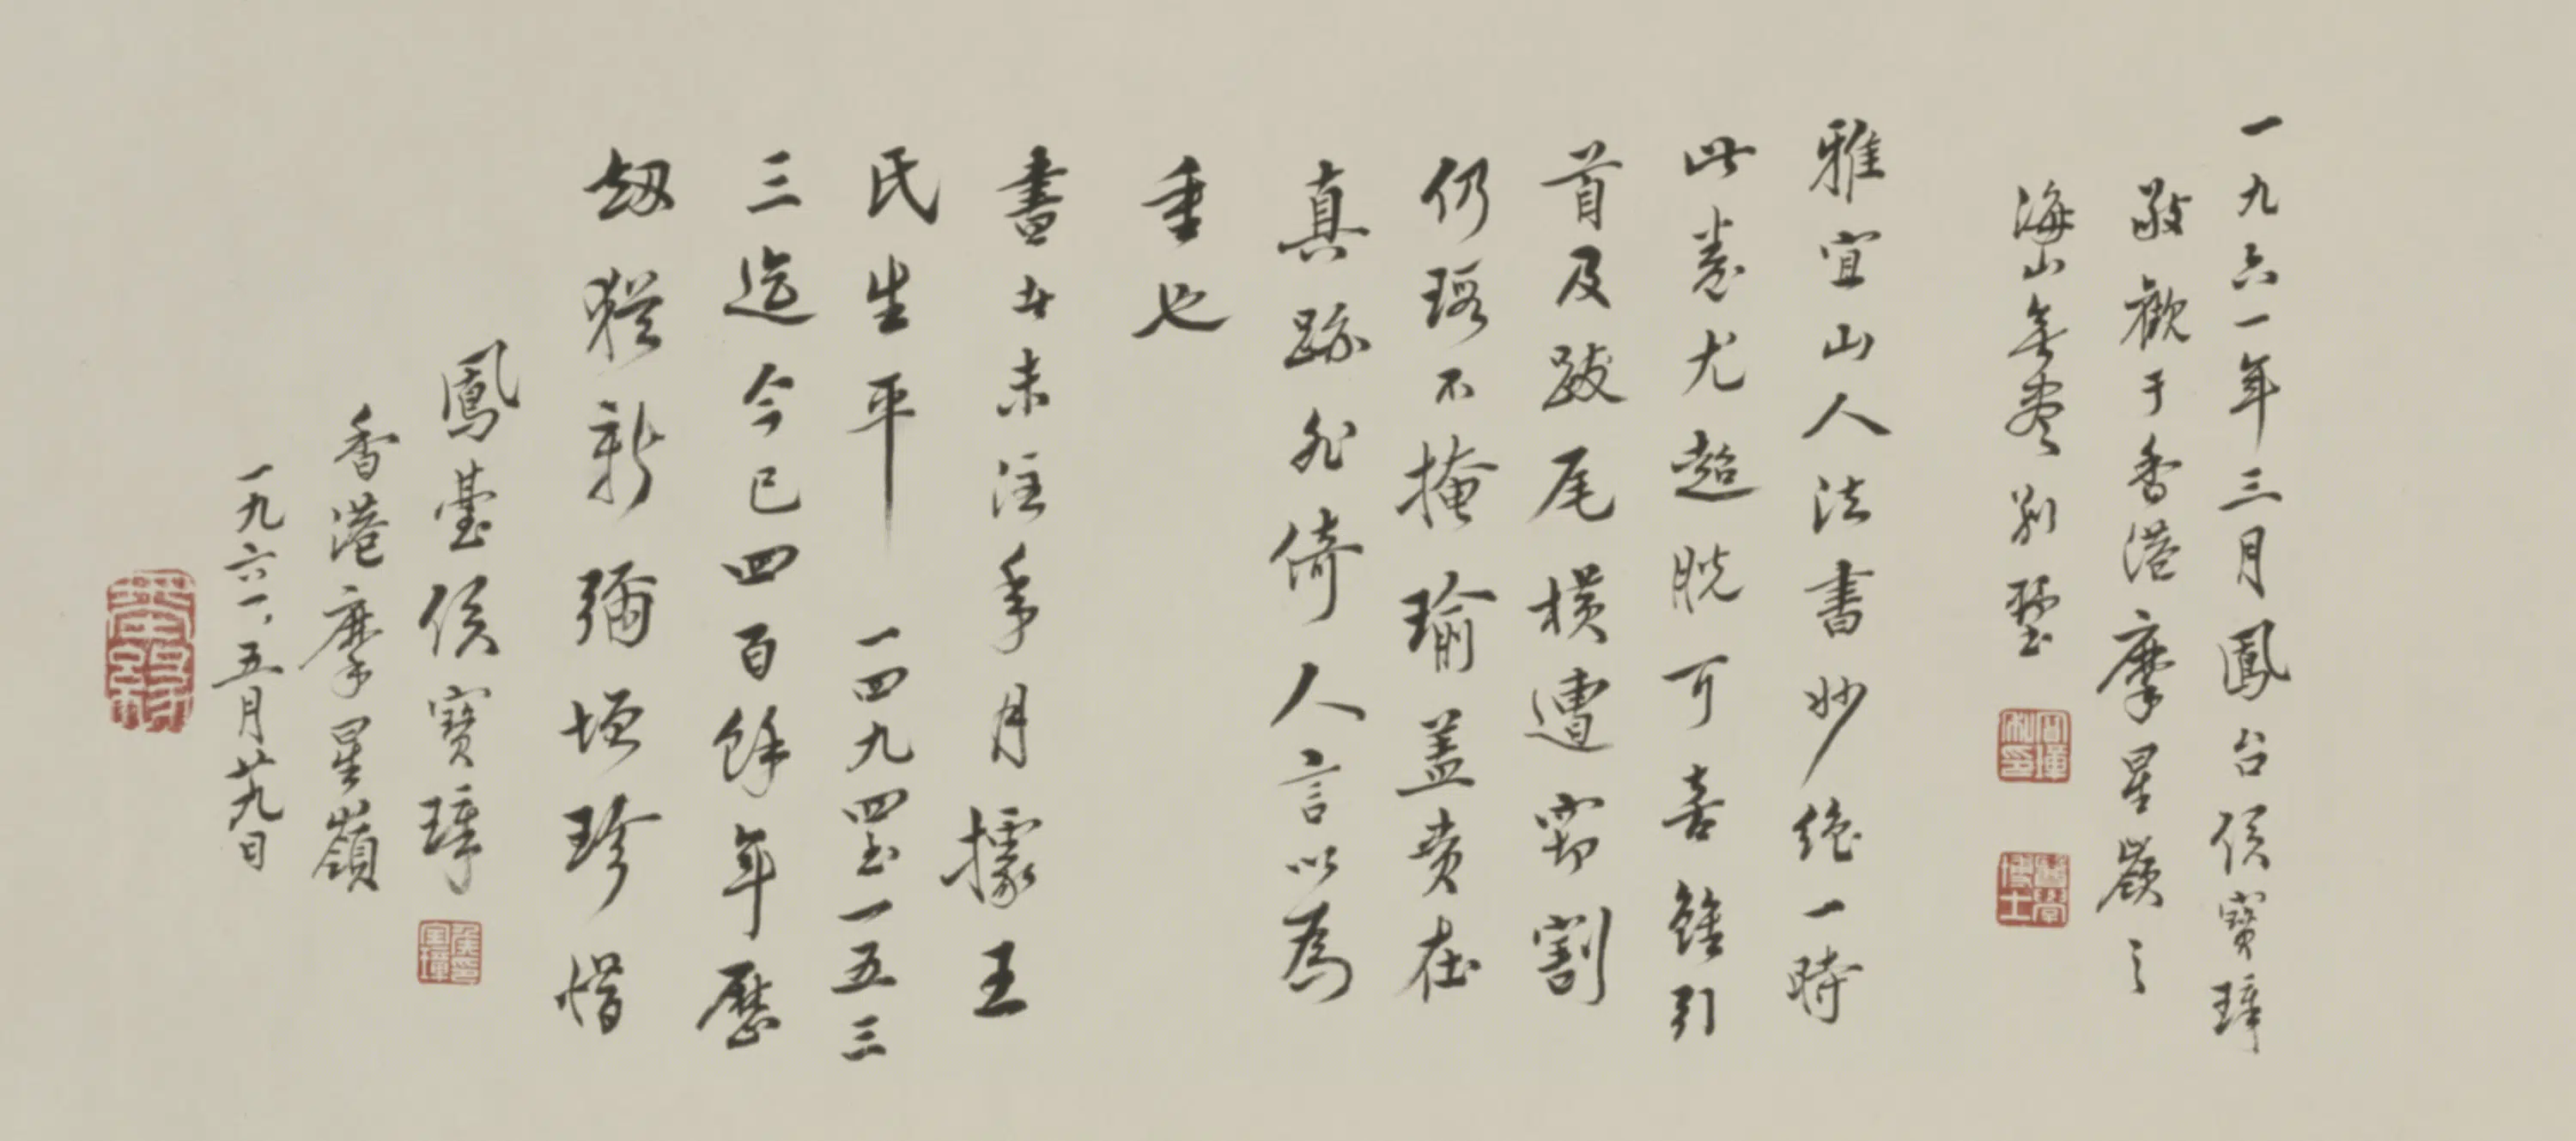 一九六一年三月鳳台侯寶璋
敬觀于香港摩星嶺之
海山無盡別墅
寶璋私印
醫學博士
雅宜山人法書妙絕一時
此卷尤超脫可喜雖引
首及跋尾橫遭竊割
仍瑕不掩瑜蓋貴在
真跡非倚人言以為
重也
書末未注年月據王
氏生平一四九四至一五三
三迄今已四百餘年歷
劫猶新彌堪珍惜
鳳臺侯寶璋
侯寶璋印
香港摩星嶺
一九六一、五月廿九日